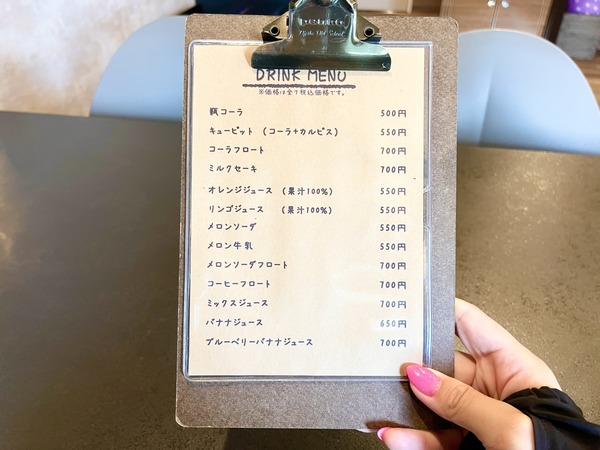 DRINK MENU
※価格は全て税込価格です。
瓶コーラ 500円
キューピット (コーラ+カルピス) 550円
コーラフロート 700円
ミルクセーキ 700円
オレンジジュース (果汁100%) 550円
リンゴジュース (果汁100%) 550円
メロンソーダ 550円
メロン牛乳 550円
メロンソーダフロート 700円
コーヒーフロート 700円
ミックスジュース 700円
バナナジュース 650円
ブルーベリーバナナジュース 700円